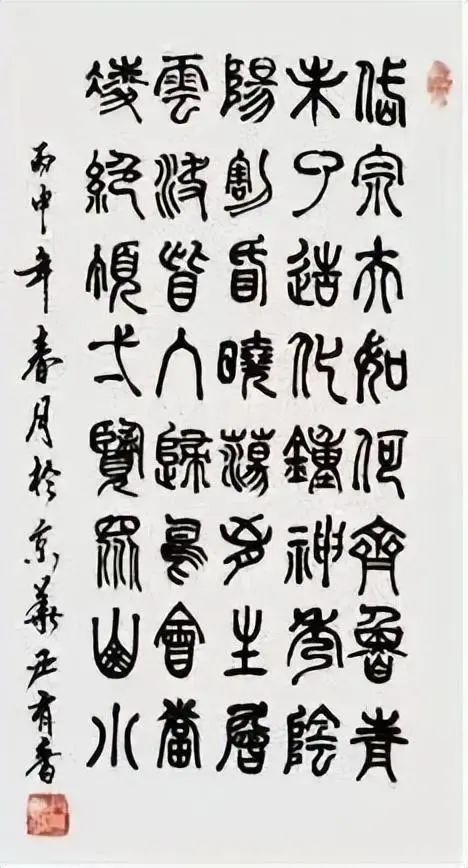 岱宗夫如何齊魯青
未了造化鍾神秀陰
陽割昏曉蕩胸生層
雲決眥入歸鳥會當
凌絕頂弌覽眾山小
丙申年春月於京華有香